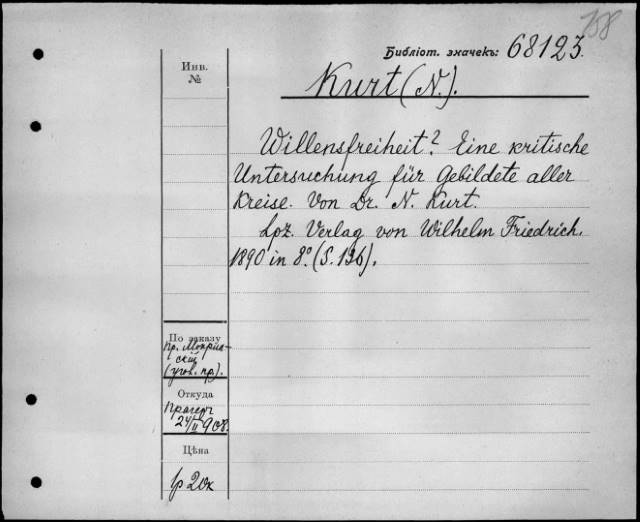 758
Библіот. значекъ: 68123.
Инв.
№
Kurt (N.).
Willensfreiheit? Eine kritische
Untersuchung für Gebildete aller
Kreise. Von Dr. N. Kurt.
Lpz. Verlag von Wilhelm Friedrich.
1890 in 8° (S. 136).
По заказу
пр.
(угол. пр).
Откуда
Прагеръ
24/II 908.
Цѣна
1р 20к